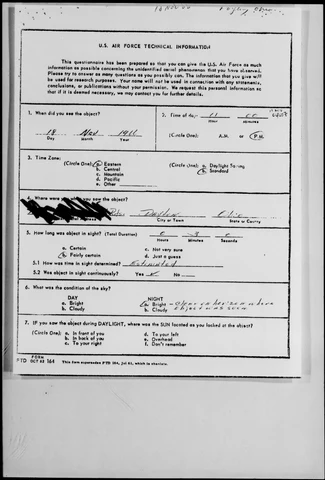 U.S. AIR FORCE TECHNICAL INFORMATION
This questionnaire has been prepared so that you can give the U.S. Air Force as much
information as possible concerning the unidentified aerial phenomenon that you have observed.
Please try to answer as many questions as you possibly can. The information that you give will
be used for research purposes. Your name will not be used in connection with any statements,
conclusions, or publications without your permission. We request this personal information so
that if it is deemed necessary, we may contact you for further details.
1. When did you see the object?
18 Nov
Day Month Year
2. Time of day: 11 00
Hour Minutes
(Circle One): A.M. or P.M.
3. Time Zone:
(Circle One): a. Eastern
b. Central
c. Mountain
d. Pacific
e. Other
(Circle One): a. Daylight Saving
b. Standard
4. Where were you
Dayton Ohio
City or Town State or County
5. How long was object in sight? (Total Duration) 0 3 0
Hours Minutes Seconds
a. Certain
b. Fairly certain
c. Not very sure
d. Just a guess
5.1 How was time in sight determined? Estimated
5.2 Was object in sight continuously? Yes No
6. What was the condition of the sky?
DAY
a. Bright
b. Cloudy
NIGHT
a. Bright - clear on horizon where
b. Cloudy object was seen
7. IF you saw the object during DAYLIGHT, where was the SUN located as you looked at the object?
(Circle One): a. In front of you
b. In back of you
c. To your right
d. To your left
e. Overhead
f. Don't remember
FORM
FTD OCT 62 164 This form supersedes FTD 164, Jul 61, which is obsolete.